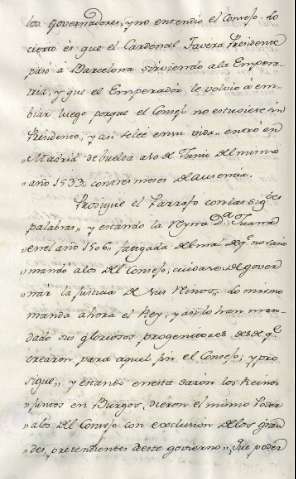 los governadores, y no entendio el Consejo. Lo
cierto es que el Cardenal Tavera Presidente
pasó á Barcelona sirviendo ala Empera-
triz, y que el Emperador le volvio a em-
biar luego porque el Consejo no estuviese sin
Presidente, y asi se lee en su vida, entró en
Madrid de buelta a 10 de Junio del mismo
año 1533 con tres meses de ausencia.
Prosigue el Parrafo con las sig.tes
palabras,, y estando la Reyna D.ª Juana
en el año 1506 fatigada del mal
mando alos del Consejo, cuidasen de gover-
nar la Justicia de sus Reinos,, lo mismo
manda ahora el Rey, y asi lo han man-
dado sus gloriosos progenitores desde q.e
crearon para aquel fin el Consejo, y pro-
sigue,, y estando en esta sazon los Reinos
juntos en Burgos, dieron el mismo Poder
alos del Consejo con exclusion delos gran-
des, pretendientes deste govierno,, Que poder